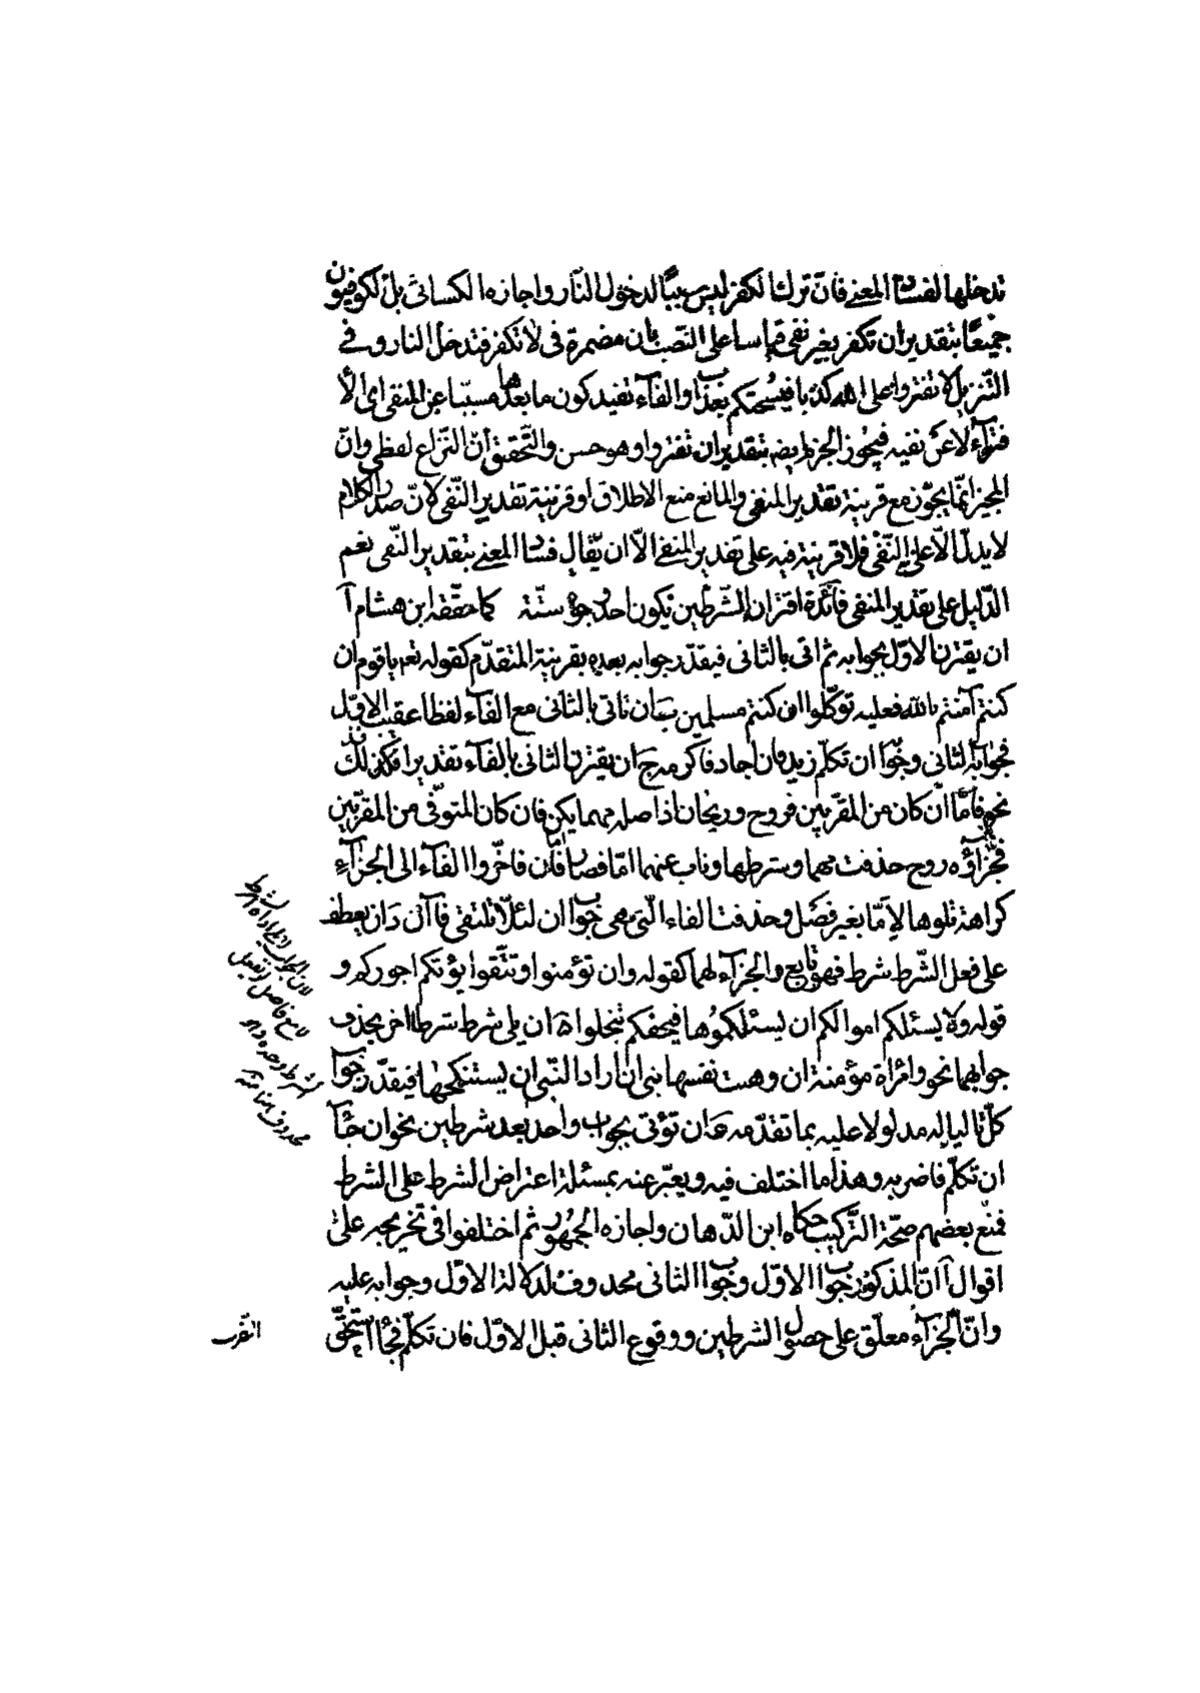 تدخلها لفساد المعنى فانّ ترك الكفر ليس سببًا لدخول النّار واجازه الكسائى بل الكوفيون
جميعًا بتقدير ان تكفر بغير نفى قياسا على النّصب بان مضمرة فى لا تكفر فتدخل النار وفى
التّنزيل لا تفتروا على الله كذبا فيسحتكم بعذاب والفآء تفيد كون ما بعدها مسبّبا عن المنفى اى الا
فترآء لا عن نفيه فيجوز الجزم ايضه بتقدير ان تفتروا وهو حسن والتّحقيق أنّ النّزاع لفظى وانّ
المجيز انّما يجوّز مع قرينة تقدير المنفى والمانع منع الاطلاق او قرينة تقدير النّفى لانّ صدر الكلام
لا يدلّ الّا على النّفى فلا قرينة فيه على تقدير المنفى الّا ان يقال فساد المعنى بتقدير النّفى نعم
الدّليل على تقدير المنفى فآئدة اقتران الشّرطين يكون احد وجوه ستّة كما حقّقه ابن هشام آ
ان يقترنا الاوّل بجوابه ثم اتى بالثانى فيقدّر جوابه بعده بقرينة المتقدّم كقوله تعم يا قوم ان
كنتم آمنتم بالله فعليه توكّلوا ان كنتم مسلمين ب ان ناتى بالثانى مع الفآء لفظا عقيب الاوّل
فجوابه الثانى وجوابه ان تكلّم زيد فان اجاد فاكرمه ج ان يقترن الثانى بالفآء تقديرا فكذلك
نحو فامّا انّ كان من المقرّبين فروح وريحان اذ اصله مهما يكن فان كان المتوفّى من المقرّبين
فجزاؤه روح حذفت مهما وشرطها وناب عنهما امّا فصار امّا فان فاخّروا الفآء الى الجزآء
كراهة تلوها لامّا بغير فصل وحذفت الفاء الّتى هى جواب ان لئلّا تلتقى فاآن د ان يعطف
على فعل الشّرط شرط فهو تابع والجزآء لهما كقوله وان تؤمنوا وتتّقوا يؤتكم اجوركم و
قوله ولا يسئلكم اموالكم ان يسئلكموها فيحفكم تبخلوا ه ان يلى شرط شرطا اخر بحذف
جوابهما نحو وامرأة مؤمنة ان وهبت نفسها للنبى ان اراد النّبى ان يستنكحها فيقدّر جوابا
كلّ تاليا له مدلولا عليه بما تقدّمه و ان تؤتى بجواب واحد بعد شرطين نحو ان جآء
ان تكلّم فاضربه وهذا ما اختلف فيه ويعبّر عنه بمسئلة اعتراض الشرط على الشرط
فمنع بعضهم صحّة التّركيب حكاه ابن الدّهان واجازه الجمهور ثم اختلفوا فى تخريجه على
اقوال آ انّ المذكور جواب الاوّل وجواب الثانى محذوف لدلالة الاوّل وجوابه عليه
وانّ الجزآء معلّق على حصول الشرطين ووقوع الثانى قبل الاوّل فان تكلّم فجآء استحقّ
الضّرب